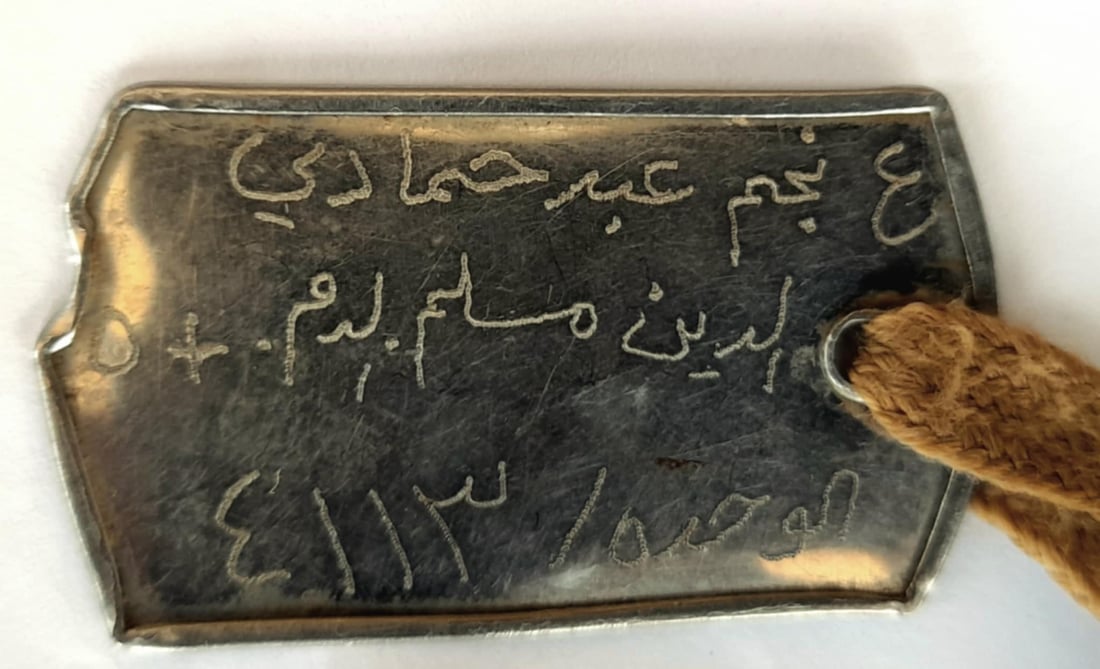 ع نجم عبد حمادي
الدين مسلم الدم. + O
الوحده/ ٤١١٣